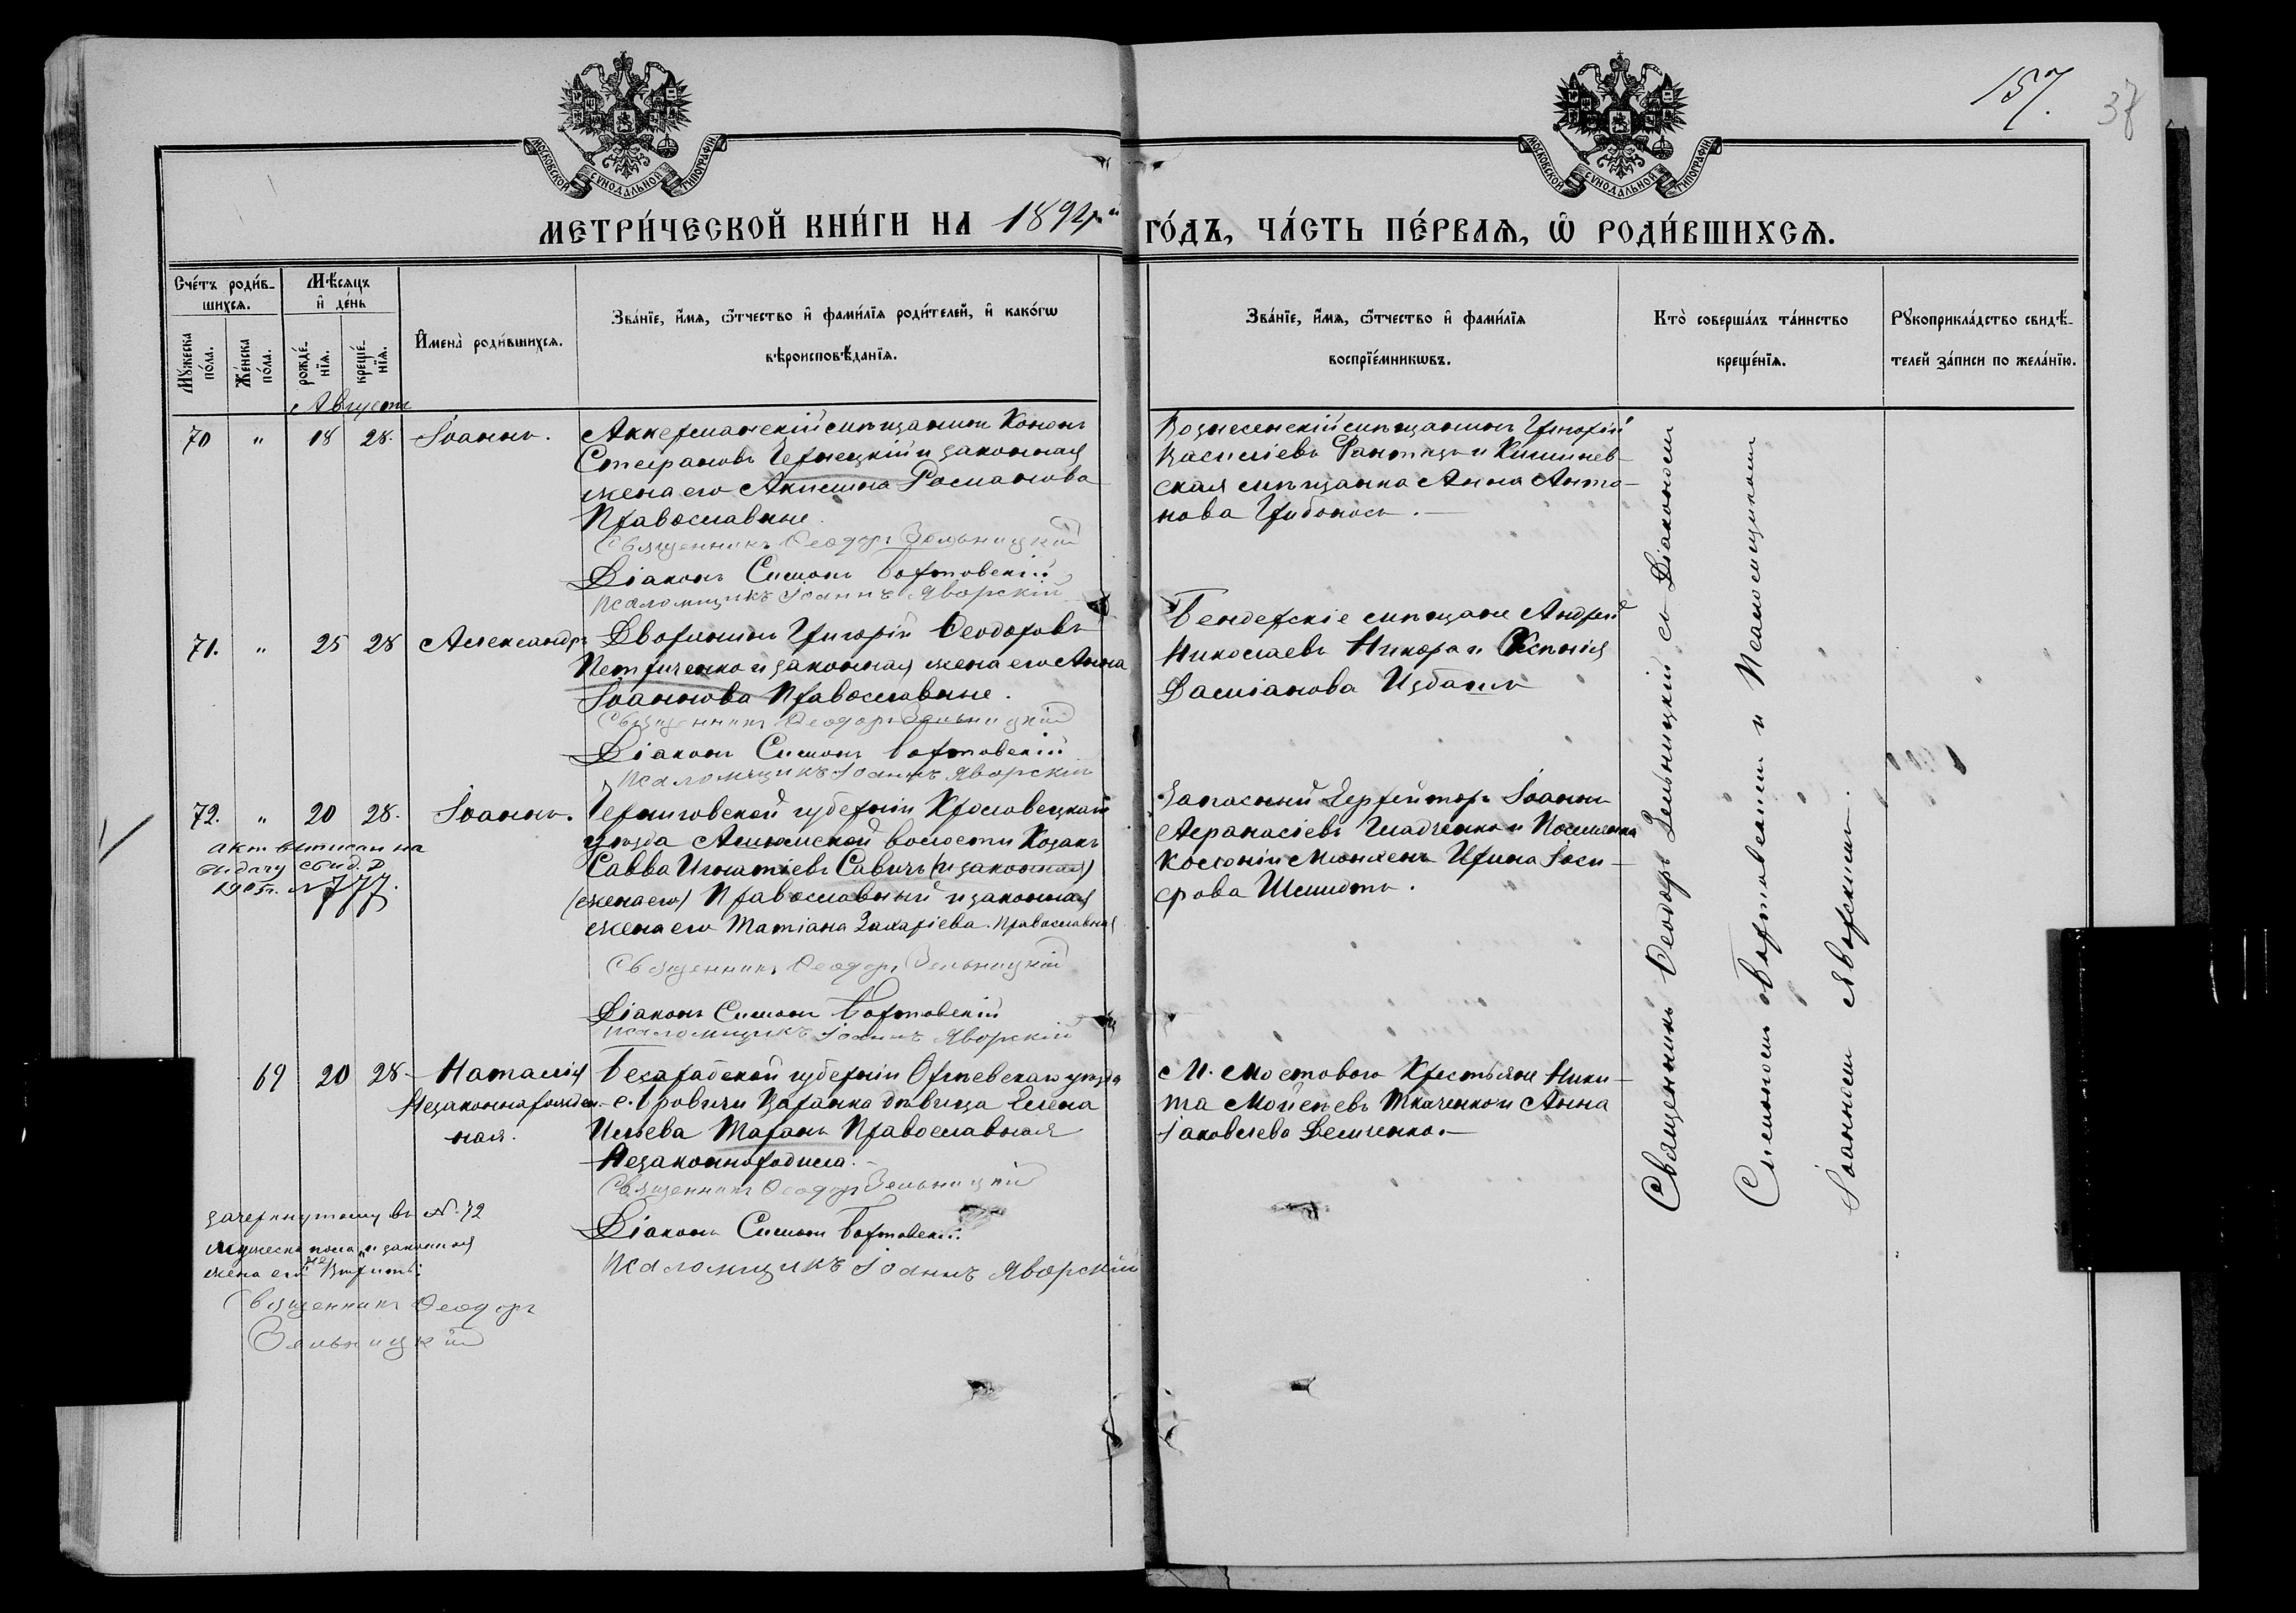 157.
37
МОСКОВСКОЙ СѴНОДАЛЬНОЙ ТИПОГРАФІИ
МОСКОВСКОЙ СѴНОДАЛЬНОЙ ТИПОГРАФІИ
МЕТРИ́ЧЕСКОЙ КНИ́ГИ НА 1892й
ГО́ДЪ, ЧА́СТЬ ПЕ́РВАѦ, Ѡ҆ РОДИ́ВШИХСѦ.
Сче́тъ роди́в-
шихсѧ.
Мꙋ́жеска по́ла.
Же́нска по́ла.
Мѣ́сѧцъ
и҆ де́нь
рожде́-
нїѧ.
креще́-
нїѧ.
И҆мена̀ роди́вшихсѧ.
Зва́нїе, и҆́мѧ, ѻ҆́тчество и҆ фами́лїѧ роди́телей, и҆ како́гѡ
вѣроисповѣ́данїѧ.
Зва́нїе, и҆́мѧ, ѻ҆́тчество и҆ фами́лїѧ
воспрїе́мникѡвъ.
Кто̀ соверша́лъ та́инство
креще́нїѧ.
Рꙋкоприкла́дство свидѣ́-
телей за́писи по жела́нїю.
Августъ
70 " 18 28. Іоаннъ.
Аккерманскій мѣщанинъ Кононъ
Стефановъ Чернецкій и законная
жена его Акилина Романова
Православные.
Священникъ Ѳеодоръ Зельницкій
Діаконъ Симонъ Бортовскій
Псаломщикъ Іоаннъ Яворскій
Вознесенскій мѣщанинъ Григорій
Василіевъ и Кишинев-
ская мѣщанка Анна Анто-
нова Грибонос.
71. " 25 28 Александръ
Дворянинъ Григорій Ѳеодоровъ
Петриченко и законная жена его Анна
Іоаннова Православные.
Священникъ Ѳеодоръ Зельницкій
Діаконъ Симонъ Бортовскій
Псаломщикъ Іоаннъ Яворскій
Бендерскіе мѣщане Андрей
Николаевъ Никора и Ксенія
Даміанова
72. " 20 28. Іоаннъ.
Актъ выписан на
выдачу свид.
1905г. №777.
Черниговской губерніи Кролевецкаго
уѣзда волости Козакъ
Савва Игнатіевъ Савичъ (и законная)
(жена его) Православный и законная
жена его Татіана Захаріева. Православная
Священникъ Ѳеодоръ Зельницкій
Діаконъ Симонъ Бортовскій
Псаломщикъ Іоаннъ Яворскій
Запасный Ефрейторъ Іоаннъ
Аѳанасіевъ Гладченко и Поселянка
Колоніи Мюнхенъ Ирина Іоси-
фова Шмидтъ.
69 20 28 Наталія
Незаконнорожден-
ная.
Бесарабской губерніи Оргѣевскаго уѣзда
с. Царанка дѣвица Елена
Ильева Таранъ Православная
Незаконнородила.
Священникъ Ѳеодоръ Зельницкій
Діаконъ Симонъ Бортовскій
Псаломщикъ Іоаннъ Яворскій
М. Мостового Крестьяне Ники-
та Мойсеевъ Ткаченко и Анна
Іаковлева Демченко.
зачеркнутому въ № 72
мужеска пола „и законная
жена его" не вѣрить.
Священникъ Ѳеодоръ
Зельницкій
Священникъ Ѳеодоръ Зельницкій съ Діакономъ
Симономъ Бортовскимъ и Псаломщикомъ
Іоанномъ Яворскимъ.